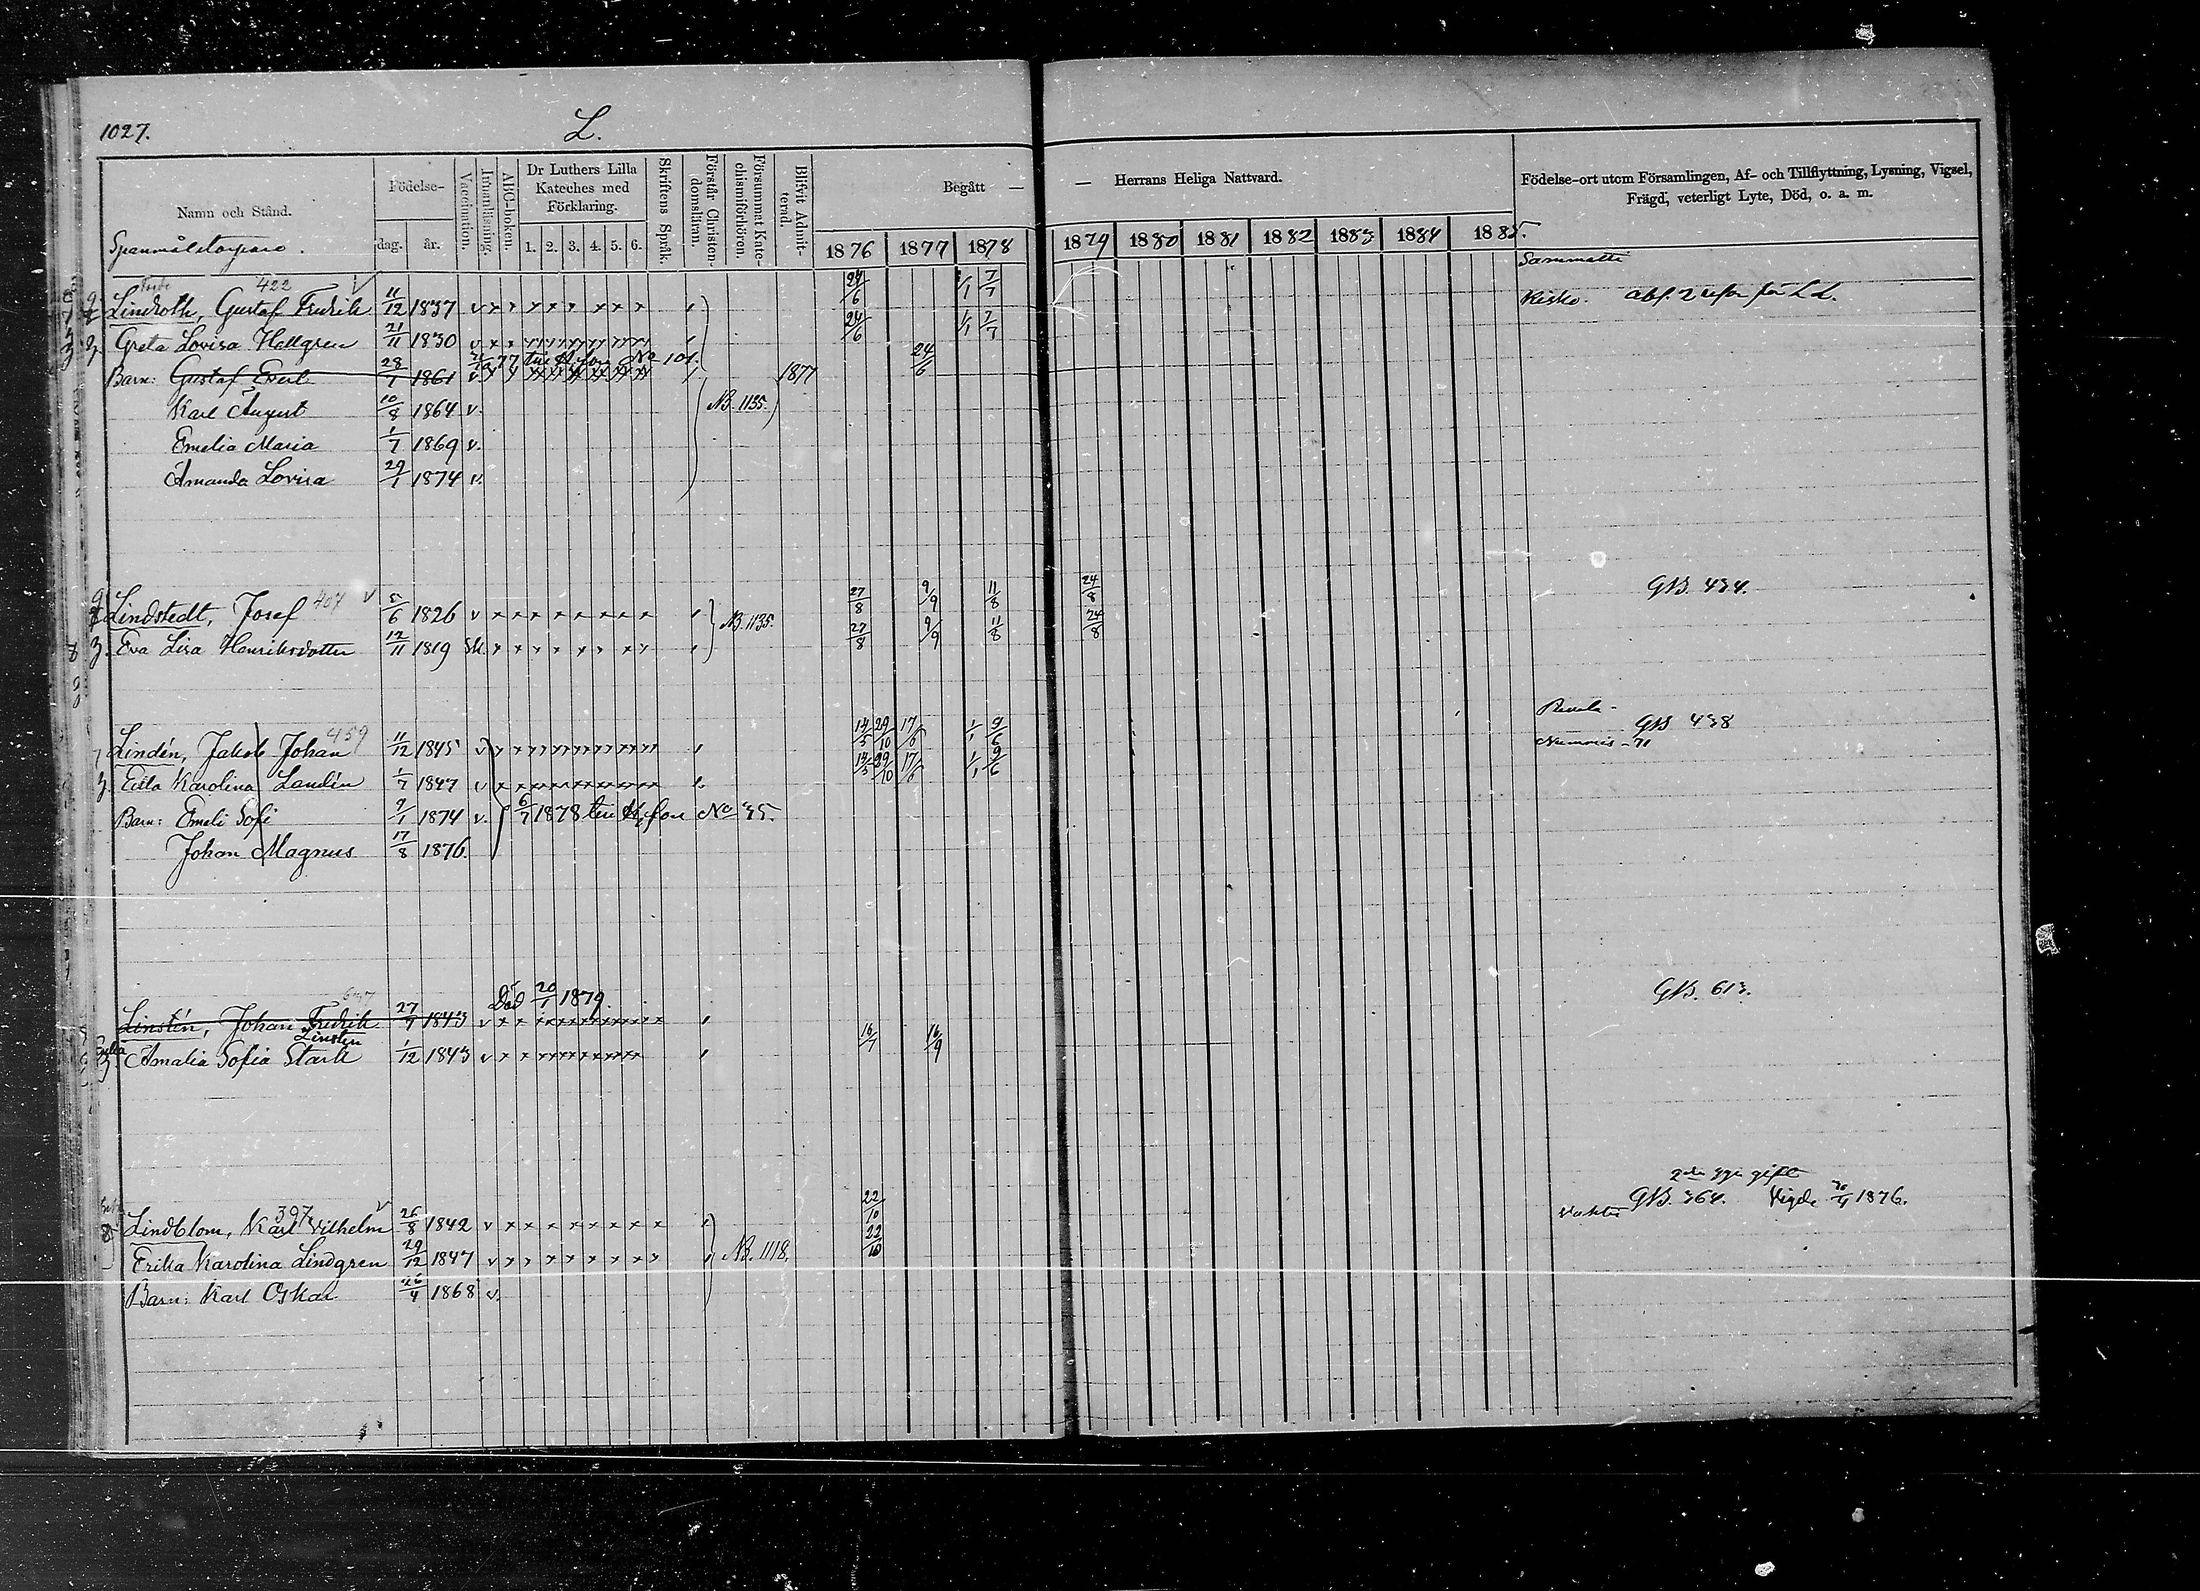 1027.
L.
Namn och Stånd.
Födelse-
dag. år.
Vaccination.
Innanläsning.
ABC-boken.
Dr Luthers Lilla Kateches med Förklaring.
1. 2. 3. 4. 5. 6.
Skriftens Språk.
Förstår Christendomsläran.
Försummat Katechismiförhören.
Blifvit Admitterad.
Begått — — Herrans Heliga Nattvard.
1876 1877 1878 1879 1880 1881 1882 1883 1884 1885.
Födelse-ort utom Församlingen, Af- och Tillflyttning, Lysning, Vigsel,
Frägd, veterligt Lyte, Död, o. a. m.
Sammatti
422
Lindroth, Gustaf Fredrik 11/12 1837 v x x x x x x x x 24/6 1/1 7/7 Kisko.
Greta Lovisa Hellgren 21/11 1830 v 24/6 1/1 7/7
77 No 101.
Barn: Gustaf Evert 28/1 1861 v 1877 24/6
Karl August 10/8 1864 v. NB. 1135.
Emelia Maria 1/7 1869 v.
Amanda Lovisa 29/1 1874 v.
407 GNB. 434.
Lindstedt, Josef 5/6 1826 v x x x x x x x x NB. 1135. 27/8 9/9 11/8 24/8
Eva Lisa Henriksdotter 12/11 1819 Sk. x x x x x x x x 27/8 9/9 11/8 24/8
459 GNB 438
Lindén, Jakob Johan 11/12 1845 v 14/5 29/10 17/6 1/1 9/6 Nummis - 71
Karolina Landén 1/7 1847 v 14/5 29/10 17/6 1/1 9/6
Barn: Emeli Sofi 9/1 1874 v. 6/7 1878 No 35.
Johan Magnus 17/8 1876.
Död 20/1 1879. GNB. 613.
Linstén, Johan Fredrik 27/7 1843 v
Linstén
Enka Amalia Sofia Stark 1/12 1843 v 16/7 16/9
2dra ggn gift
397 GNB. 364. Vigde 1876.
Lindblom, Karl Vilhelm 26/8 1842 v x x x x x x x x 22/10
Erika Karolina Lindgren 29/12 1847 v x x x x x x x x NB. 1118. 22/10
Barn: Karl Oskar 26/4 1868 v.